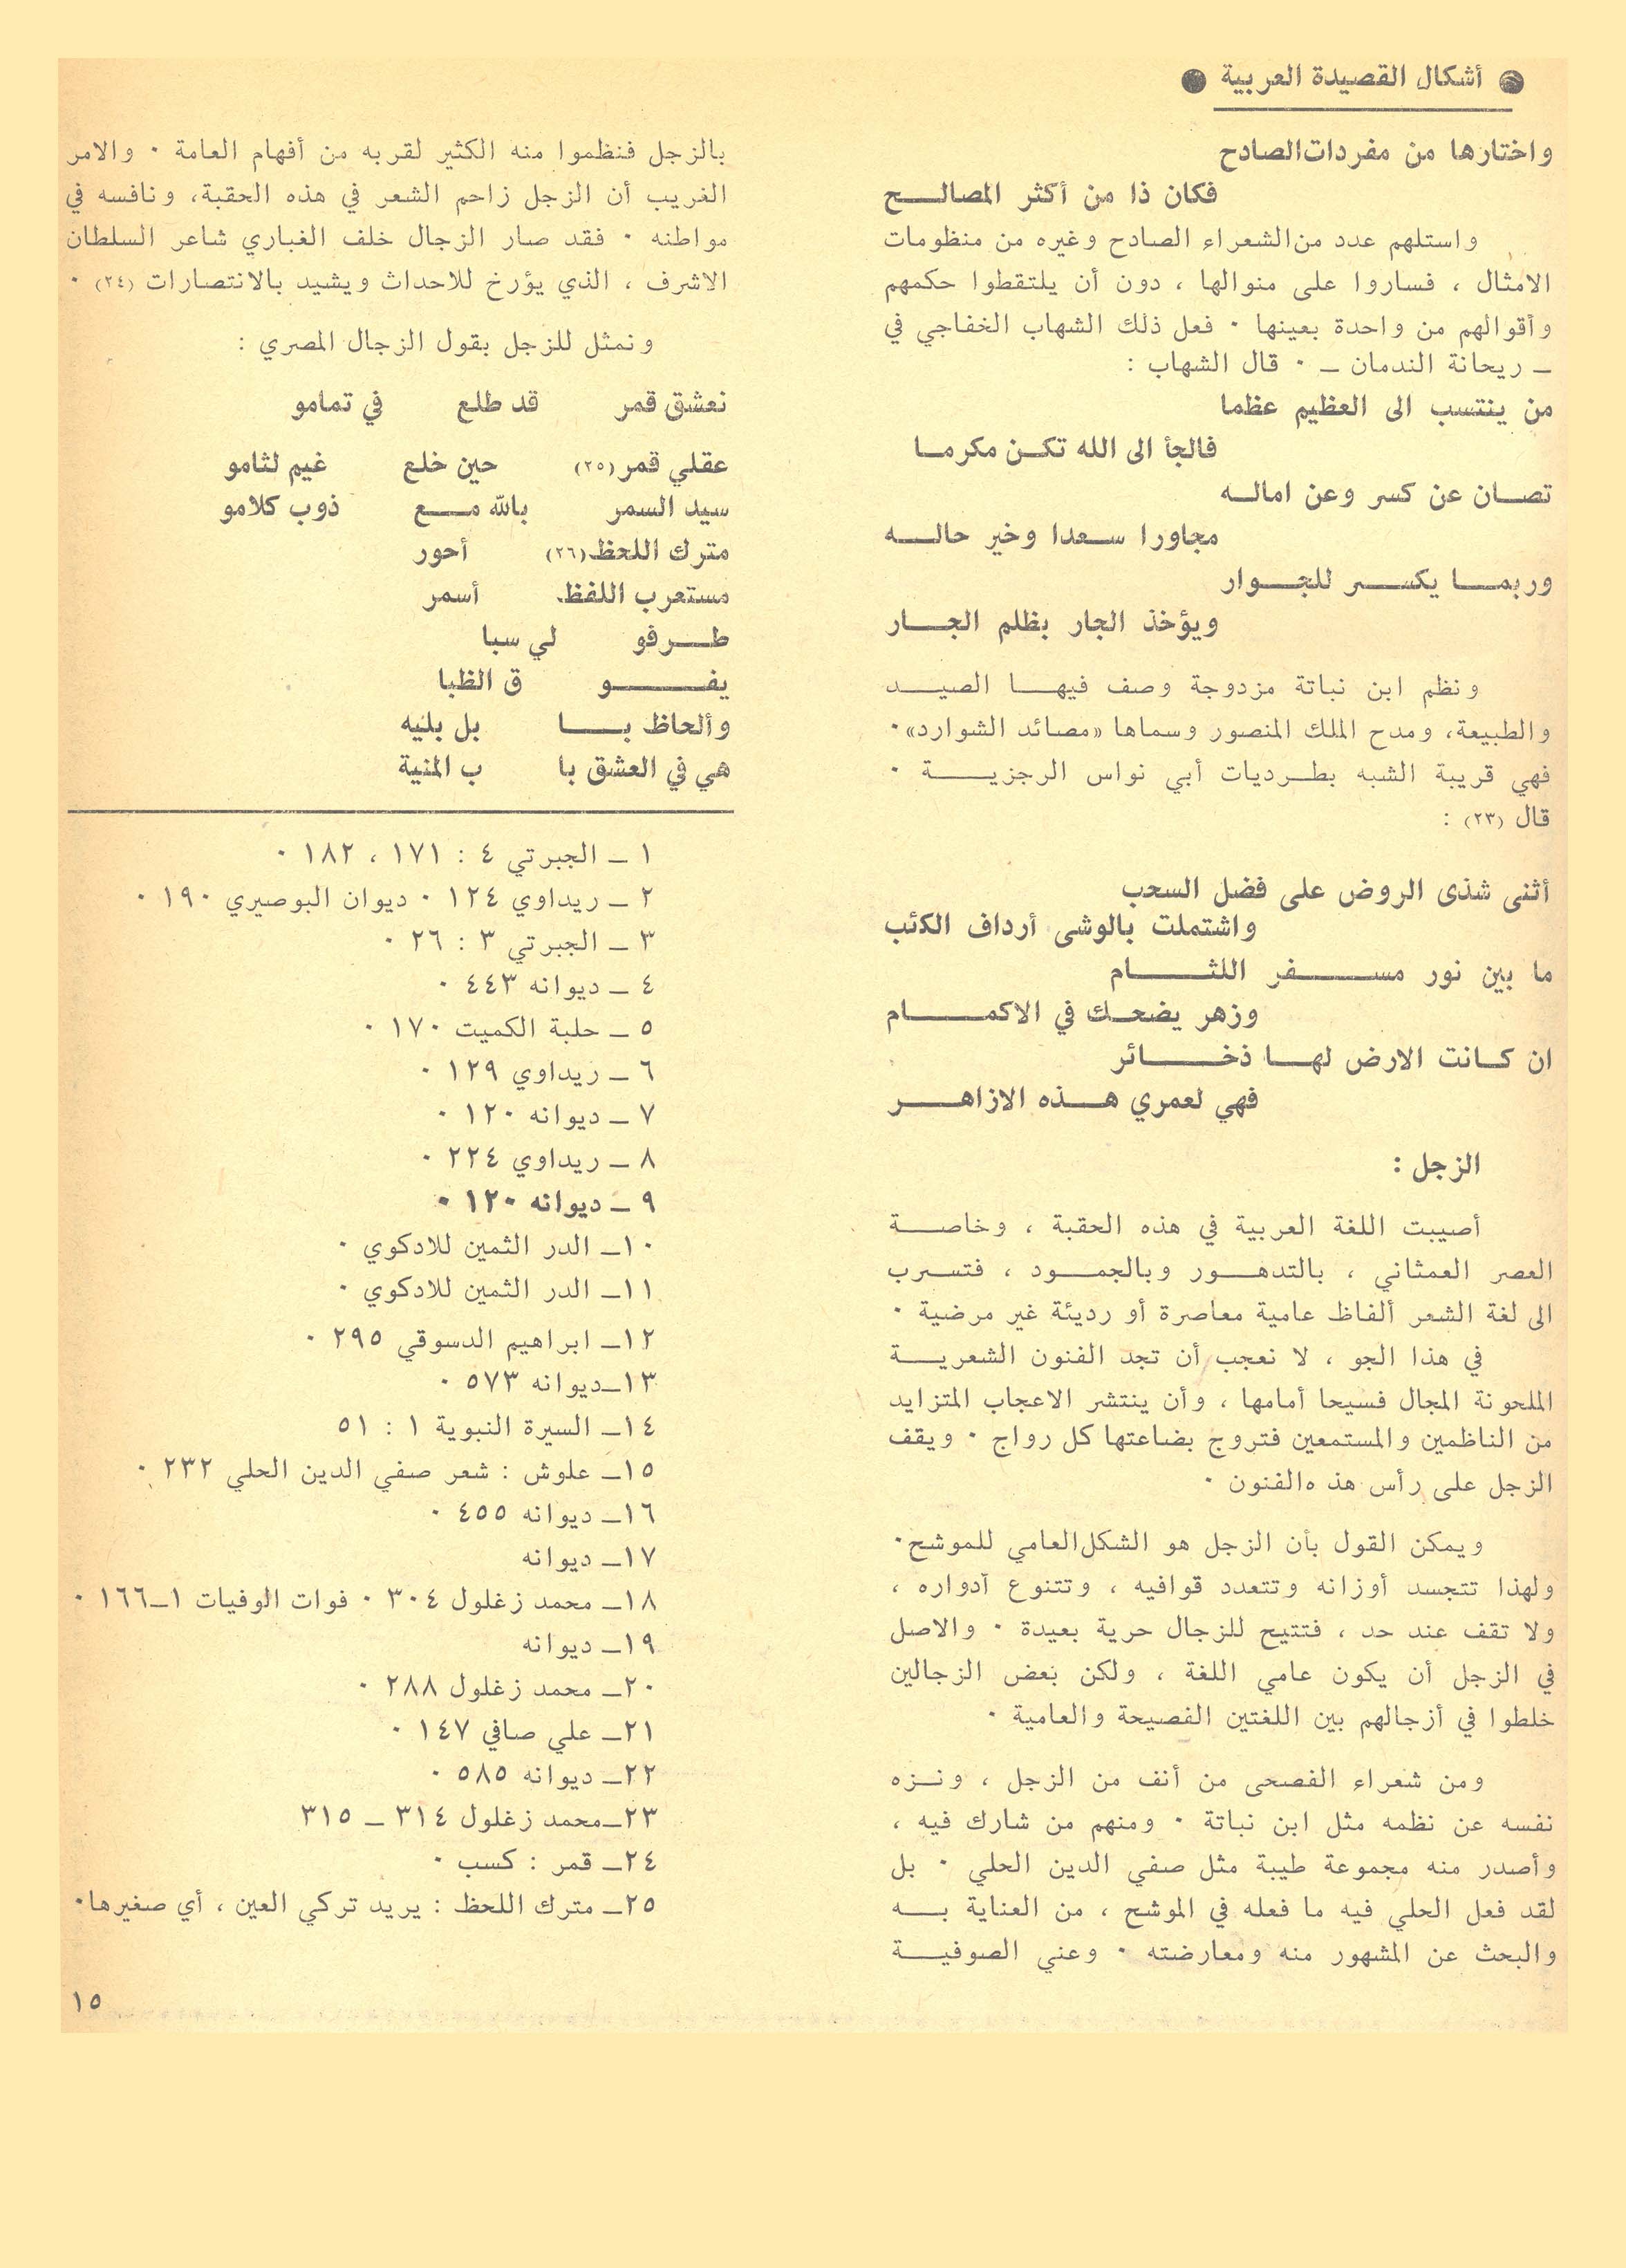 ● أشكال القصيدة العربية ●
واختارها من مفردات الصادح
فكان ذا من أكثر المصالح
واستلهم عدد من الشعراء الصادح وغيره من منظومات
الامثال ، فساروا على منوالها ، دون أن يلتقطوا حكمهم
وأقوالهم من واحدة بعينها ٠ فعل ذلك الشهاب الخفاجي في
ـ ريحانة الندمان ـ ٠ قال الشهاب :
من ينتسب الى العظيم عظما
فالجأ الى الله تكن مكرما
تصان عن كسر وعن اماله
مجاورا سعدا وخير حاله
وربما يكسر للجوار
ويؤخذ الجار بظلم الجار
ونظم ابن نباتة مزدوجة وصف فيها الصيد
والطبيعة، ومدح الملك المنصور وسماها «مصائد الشوارد»٠
فهي قريبة الشبه بطرديات أبي نواس الرجزية ٠
قال (٢٣) :
أثنى شذى الروض على فضل السحب
واشتملت بالوشى أرداف الكئب
ما بين نور مسفر اللثام
وزهر يضحك في الاكمام
ان كانت الارض لها ذخائر
فهي لعمري هذه الازاهر
الزجل :
أصيبت اللغة العربية في هذه الحقبة ، وخاصة
العصر العمثاني ، بالتدهور وبالجمود ، فتسرب
الى لغة الشعر ألفاظ عامية معاصرة أو رديئة غير مرضية ٠
في هذا الجو ، لا نعجب أن تجد الفنون الشعرية
الملحونة المجال فسيحا أمامها ، وأن ينتشر الاعجاب المتزايد
من الناظمين والمستمعين فتروج بضاعتها كل رواج ٠ ويقف
الزجل على رأس هذ ه الفنون ٠
ويمكن القول بأن الزجل هو الشكل العامي للموشح٠
ولهذا تتجسد أوزانه وتتعدد قوافيه ، وتتنوع آدواره ،
ولا تقف عند حد ، فتتيح للزجال حرية بعيدة ٠ والاصل
في الزجل أن يكون عامي اللغة ، ولكن بعض الزجالين
خلطوا في أزجالهم بين اللغتين الفصيحة والعامية ٠
ومن شعراء الفصحى من أنف من الزجل ، ونزه
نفسه عن نظمه مثل ابن نباتة ٠ ومنهم من شارك فيه ،
وأصدر منه مجموعة طيبة مثل صفي الدين الحلي ٠ بل
لقد فعل الحلي فيه ما فعله في الموشح ، من العناية به
والبحث عن المشهور منه ومعارضته ٠ وعني الصوفية
بالزجل فنظموا منه الكثير لقربه من أفهام العامة ٠ والامر
الغريب أن الزجل زاحم الشعر في هذه الحقبة، ونافسه في
مواطنه ٠ فقد صار الزجال خلف الغباري شاعر السلطان
الاشرف ، الذي يؤرخ للاحداث ويشيد بالانتصارات (٢٤) ٠
ونمثل للزجل بقول الزجال المصري :
نعشق قمر قد طلع في تمامو
عقلي قمر (٢٥) حين خلع غيم لثامو
سيد السمر بالله مع ذوب كلامو
مترك اللحظ (٢٦) أحور
مستعرب اللفظ أسمر
طرفو لي سبا
يفو ق الظبا
وألحاظ با بل بليه
هي في العشق با ب المنية
١ ـ الجبرتي ٤ : ١٧١ ، ١٨٢ ٠
٢ ـ ريداوي ١٢٤ ٠ ديوان البوصيري ١٩٠ ٠
٣ ـ الجبرتي ٣ : ٢٦ ٠
٤ ـ ديوانه ٤٤٣ ٠
٥ ـ حلبة الكميت ١٧٠ ٠
٦ ـ ريداوي ١٢٩ ٠
٧ ـ ديوانه ١٢٠ ٠
٨ ـ ريداوي ٢٢٤ ٠
٩ ـ ديوانه ١٢٠ ٠
١٠ـ الدر الثمين للادكوي ٠
١١ـ الدر الثمين للادكوي ٠
١٢ـ ابراهيم الدسوقي ٢٩٥ ٠
١٣ـديوانه ٥٧٣ ٠
١٤ـ السيرة النبوية ١ : ٥١
١٥ـ علوش : شعر صفي الدين الحلي ٢٣٢ ٠
١٦ـ ديوانه ٤٥٥ ٠
١٧ـ ديوانه
١٨ـ محمد زغلول ٣٠٤ ٠ فوات الوفيات ١ـ١٦٦ ٠
١٩ـ ديوانه
٢٠ـ محمد زغلول ٢٨٨ ٠
٢١ـ علي صافي ١٤٧ ٠
٢٢ـ ديوانه ٥٨٥ ٠
٢٣ـمحمد زغلول ٣١٤ ـ ٣١٥
٢٤ـ قمر : كسب ٠
٢٥ـ مترك اللحظ : يريد تركي العين ، أي صغيرها٠
١٥